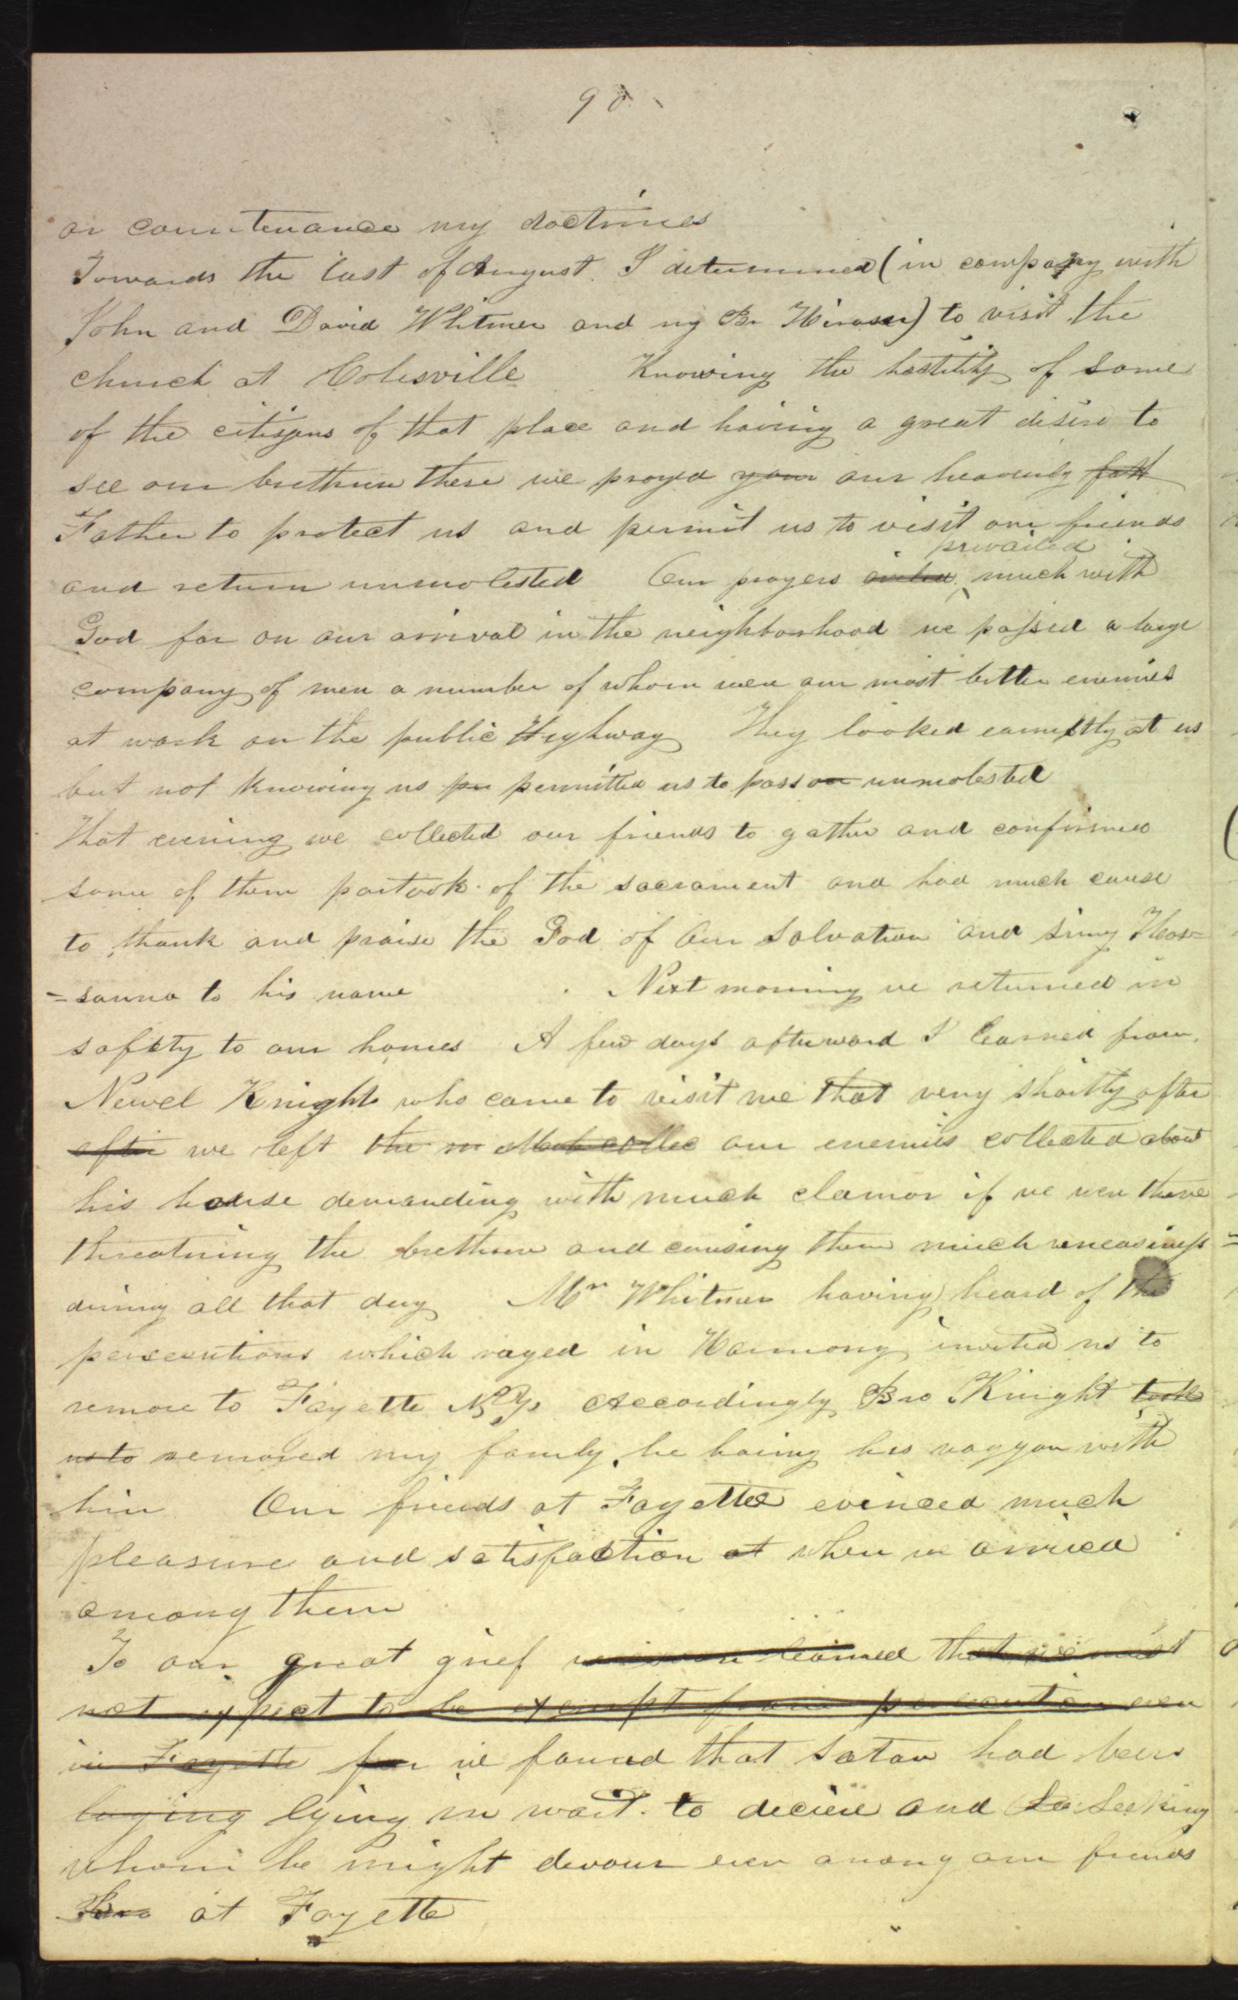 98
or countenance my doctrines
Towards the last of August I determined (in company with
John and David Whitmer and my Br Hiram) to visit the
church at Colesville Knowing the hostility of some
of the citizens of that place and having a great desire to
see our brethren there we prayed our heavenly fath
Father to protect us and permit us to visit our friends
prevailed
and return unmolested Our prayers much with
God for on our arrival in the neighborhood we passed a large
company of men a number of whom were our most bitter enemies
at work on the public Highway They looked earnestly at us
but not knowing us pe permitted us to pass on unmolested
That evening we collected our friends to gather and confirmed
some of them partook of the sacrament and had much cause
to thank and praise the God of Our Salvation and sing Hos=
=sanna to his name Next morning we returned in
safety to our homes A few days afterward I learned from
Newel Knight who came to visit me that very shortly after
after we left the collec our enemies collected about
his house demanding with much clamor if we were there
threatning the brethren and causing them much uneasiness
during all that day Mr Whitmer having heard of the
persecutions which raged in Harmony invited us to
remove to Fayette N.Y. Accordingly Bro Knight took
us to removed my family, he having his waggon with
him Our friends at Fayette evinced much
pleasure and satisfaction at when we arrived
among them
To our great grief we soon learned that we must
not expect to be exempt from persecution even
in Fayette for we found that Satan had been
laying lying in wait to decieve and Se Seeking
whom he might devour even among our friends
Bro at Fayette